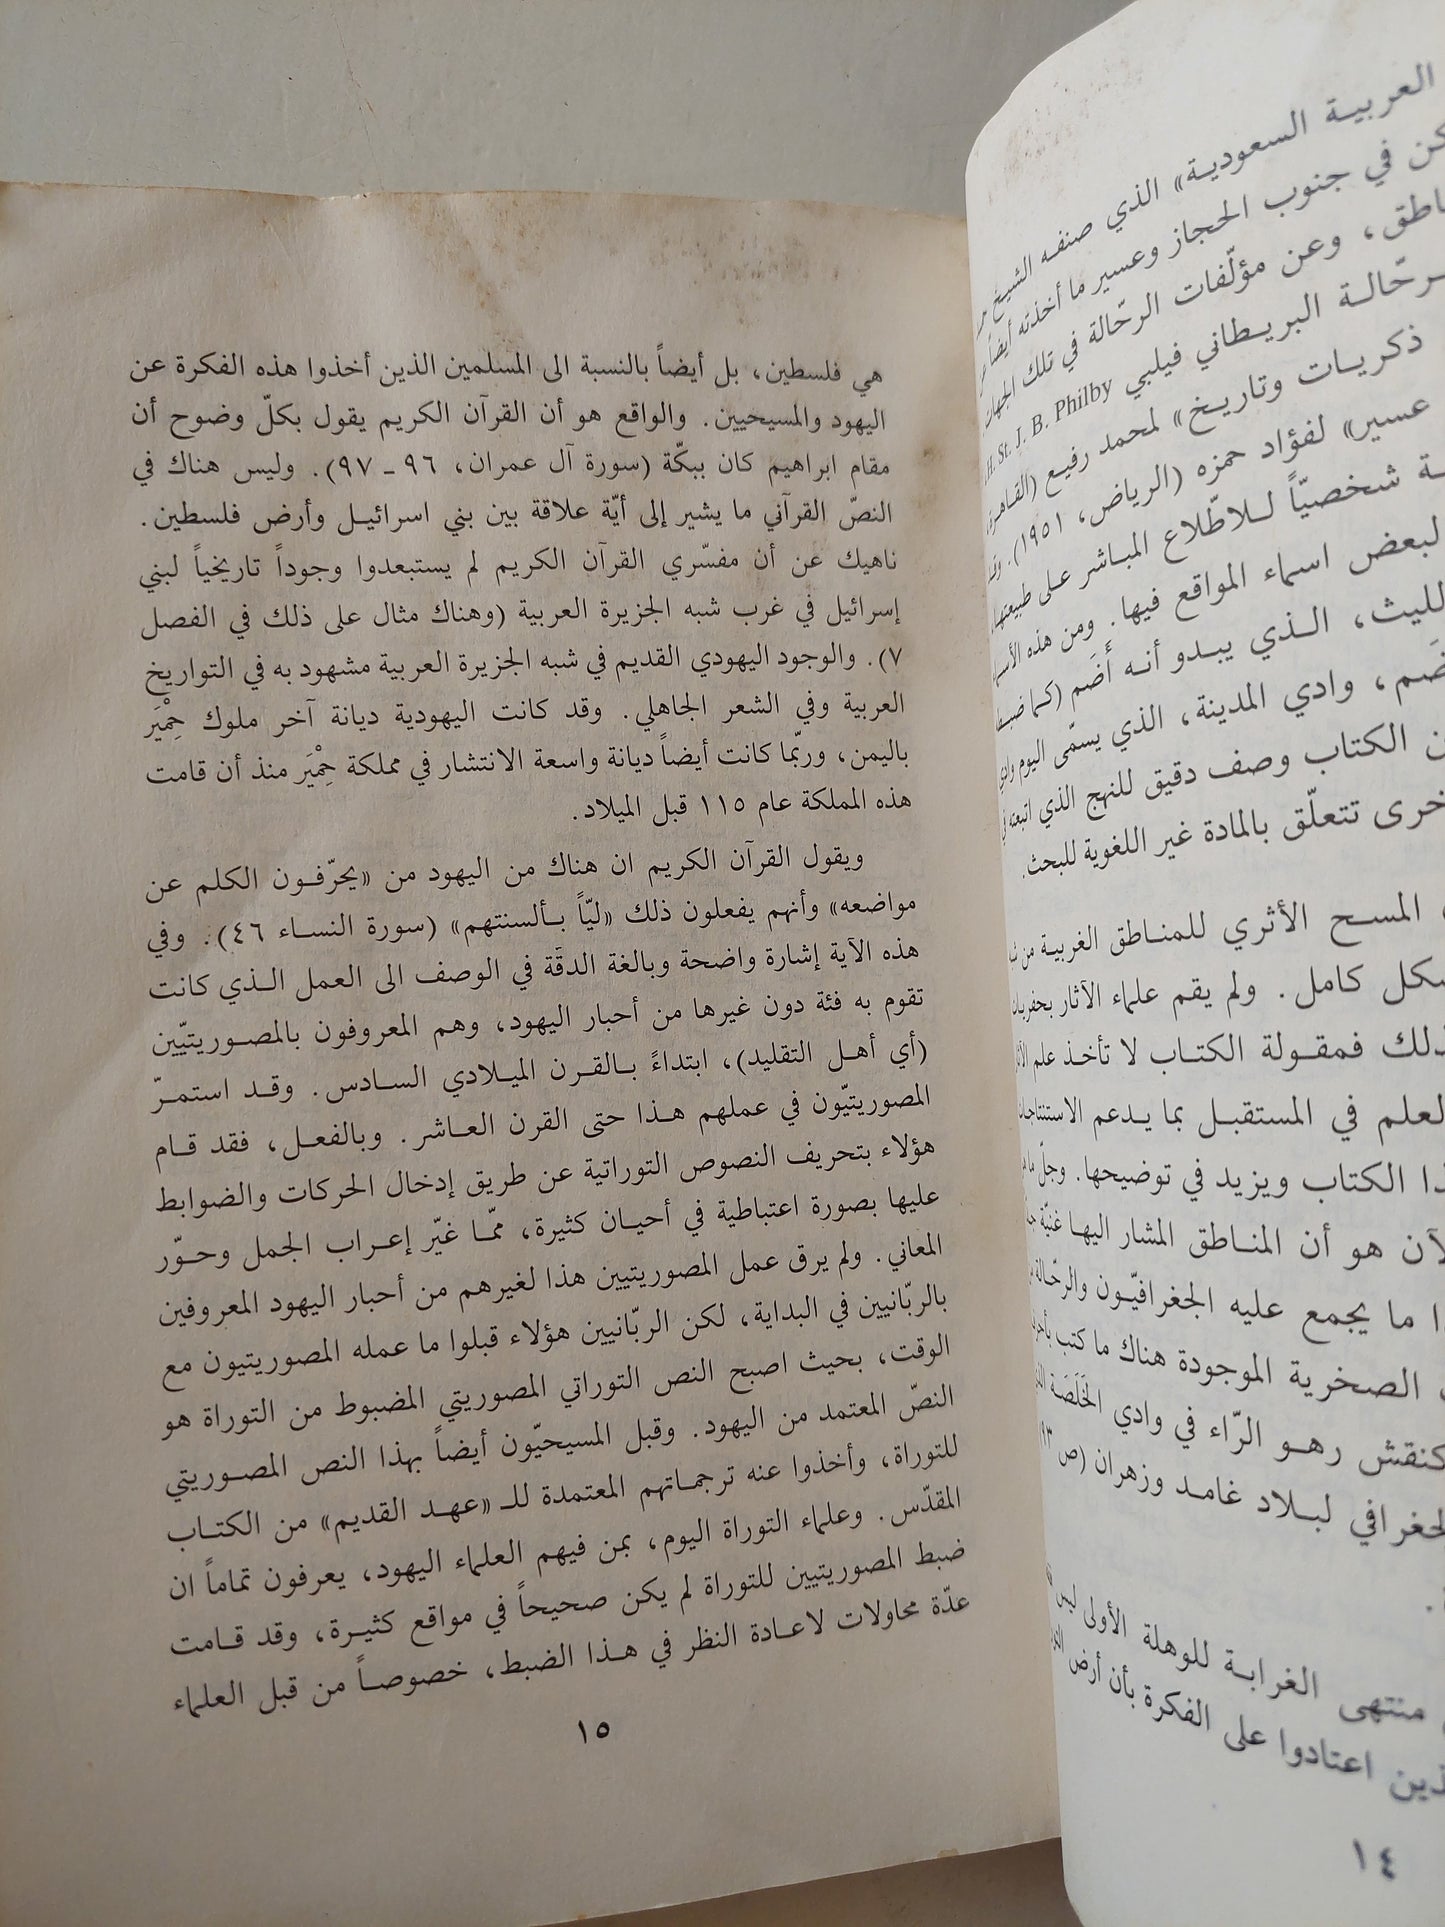 العربية السعودية» الذي صنفه الشيخ
في جنوب الحجاز وعسير ما أخذته أيضاً
وعن مؤلّفات الرحّالة في تلك الجهات
البريطاني فيلبي H. St. J. B. Philby
ذكريات وتاريخ» لمحمد رفيع (القاهرة
عسير» لفؤاد حمزه (الرياض، ١٩٥١).
شخصيّاً للاطّلاع المباشر على طبيعتها
لبعض اسماء المواقع فيها. ومن هذه
الليث، الذي يبدو أنه أَضَم (كما
وادي المدينة، الذي يسمّى اليوم
الكتاب وصف دقيق للنهج الذي اتبعته
تتعلّق بالمادة غير اللغوية للبحث.
المسح الأثري للمناطق الغربية من
كامل. ولم يقم علماء الآثار
فمقولة الكتاب لا تأخذ علم
في المستقبل بما يدعم الاستنتاجات
الكتاب ويزيد في توضيحها. وجلّ
هو أن المناطق المشار اليها غنيّة
ما يجمع عليه الجغرافيّون والرحّالة
الصخرية الموجودة هناك ما كتب
كنقش رهو الرّاء في وادي الخَلَصَة
لبلاد غامد وزهران (ص
منتهى الغرابة للوهلة الأولى ليس
اعتادوا على الفكرة بأن أرض
١٤
هي فلسطين، بل أيضاً بالنسبة الى المسلمين الذين أخذوا هذه الفكرة عن
اليهود والمسيحيين. والواقع هو أن القرآن الكريم يقول بكلّ وضوح أن
مقام ابراهيم كان ببكّة (سورة آل عمران، ٩٦ ـ ٩٧). وليس هناك في
النصّ القرآني ما يشير إلى أيّة علاقة بين بني اسرائيل وأرض فلسطين.
ناهيك عن أن مفسّري القرآن الكريم لم يستبعدوا وجوداً تاريخياً لبني
إسرائيل في غرب شبه الجزيرة العربية (وهناك مثال على ذلك في الفصل
٧). والوجود اليهودي القديم في شبه الجزيرة العربية مشهود به في التواريخ
العربية وفي الشعر الجاهلي. وقد كانت اليهودية ديانة آخر ملوك حِمْيَر
باليمن، وربّما كانت أيضاً ديانة واسعة الانتشار في مملكة حِمْيَر منذ أن قامت
هذه المملكة عام ١١٥ قبل الميلاد.
ويقول القرآن الكريم ان هناك من اليهود من «يحرّفون الكلم عن
مواضعه» وأنهم يفعلون ذلك «ليّاً بألسنتهم» (سورة النساء ٤٦). وفي
هذه الآية إشارة واضحة وبالغة الدقّة في الوصف الى العمل الذي كانت
تقوم به فئة دون غيرها من أحبار اليهود، وهم المعروفون بالمصوريتيّين
(أي أهل التقليد)، ابتداءً بالقرن الميلادي السادس. وقد استمرّ
المصوريتيّون في عملهم هذا حتى القرن العاشر. وبالفعل، فقد قام
هؤلاء بتحريف النصوص التوراتية عن طريق إدخال الحركات والضوابط
عليها بصورة اعتباطية في أحيان كثيرة، ممّا غيّر إعراب الجمل وحوّر
المعاني. ولم يرق عمل المصوريتيين هذا لغيرهم من أحبار اليهود المعروفين
بالربّانيين في البداية، لكن الربّانيين هؤلاء قبلوا ما عمله المصوريتيون مع
الوقت، بحيث اصبح النص التوراتي المصوريتي المضبوط من التوراة هو
النصّ المعتمد من اليهود. وقبل المسيحيّون أيضاً بهذا النص المصوريتي
للتوراة، وأخذوا عنه ترجماتهم المعتمدة للـ «عهد القديم» من الكتاب
المقدّس. وعلماء التوراة اليوم، بمن فيهم العلماء اليهود، يعرفون تماماً ان
ضبط المصوريتيين للتوراة لم يكن صحيحاً في مواقع كثيرة، وقد قامت
عدّة محاولات لاعادة النظر في هذا الضبط، خصوصاً من قبل العلماء
١٥